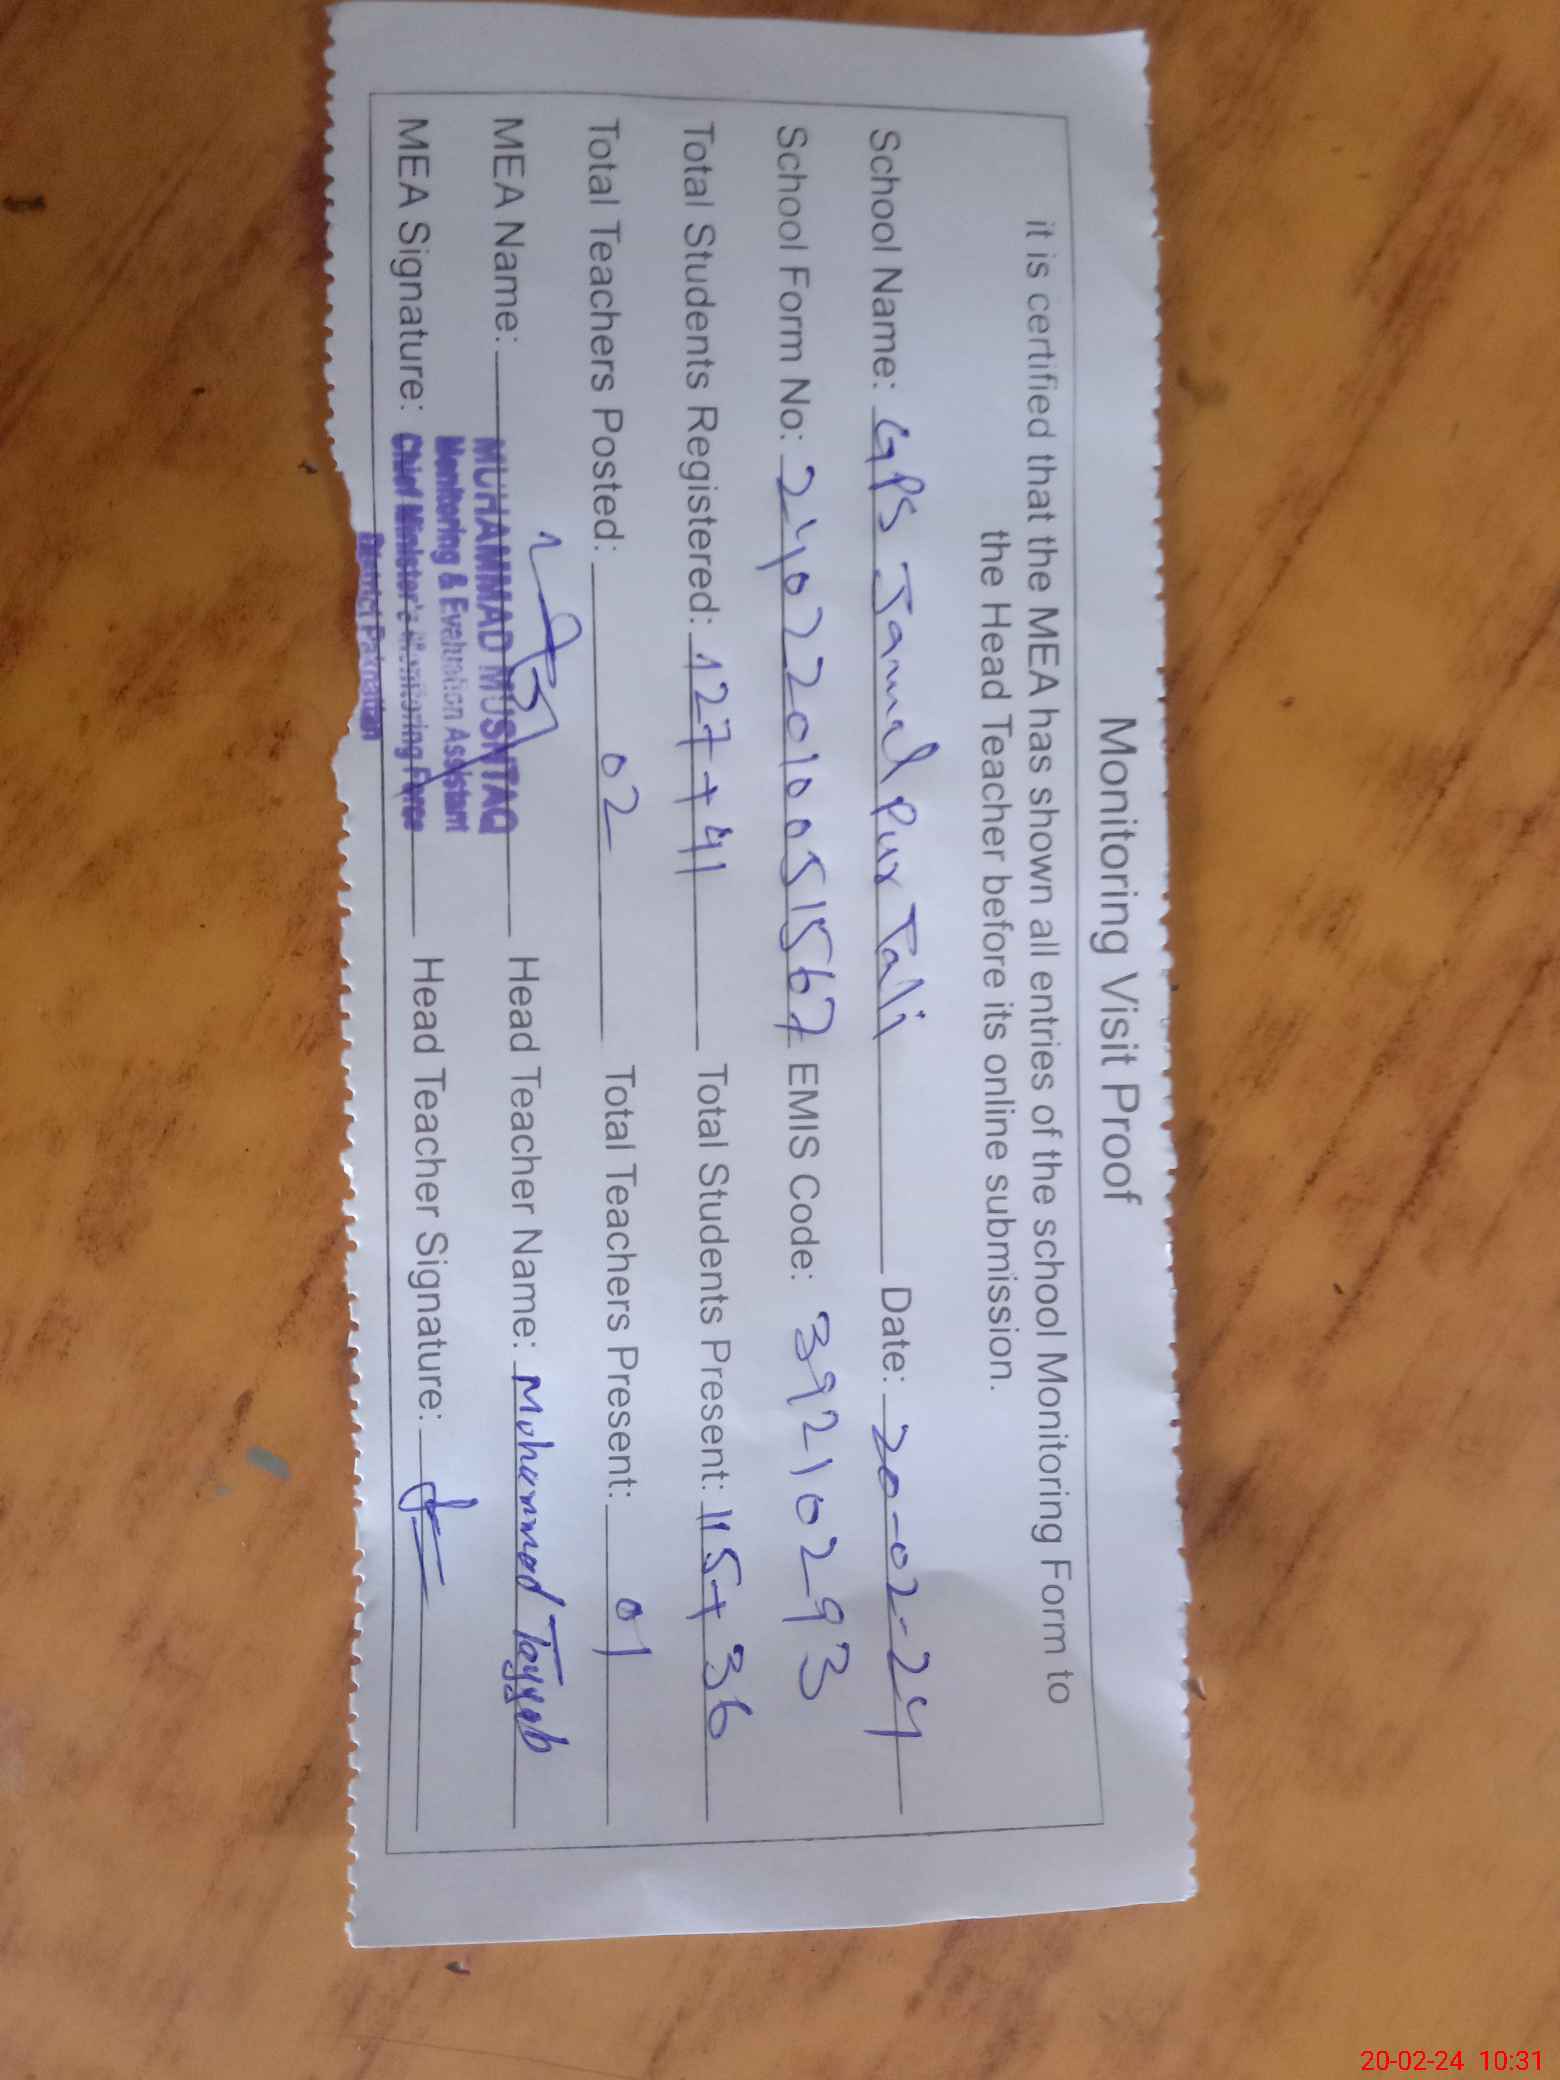 Monitoring Visit Proof
it is certified that the MEA has shown all entries of the school Monitoring Form to
the Head Teacher before its online submission.
School Name: GPS Jamal Pur Tali Date: 20-02-24
School Form No: 24022010051567 EMIS Code: 39210293
Total Students Registered: 127+41 Total Students Present: 115+36
Total Teachers Posted: 02 Total Teachers Present: 01
MEA Name: MUHAMMAD MUSHTAQ Head Teacher Name: Muhammad Tayyab
Monitoring & Evaluation Assistant
MEA Signature: Chief Minister's Monitoring Force Head Teacher Signature:
District Pakpattan
20-02-24 10:31